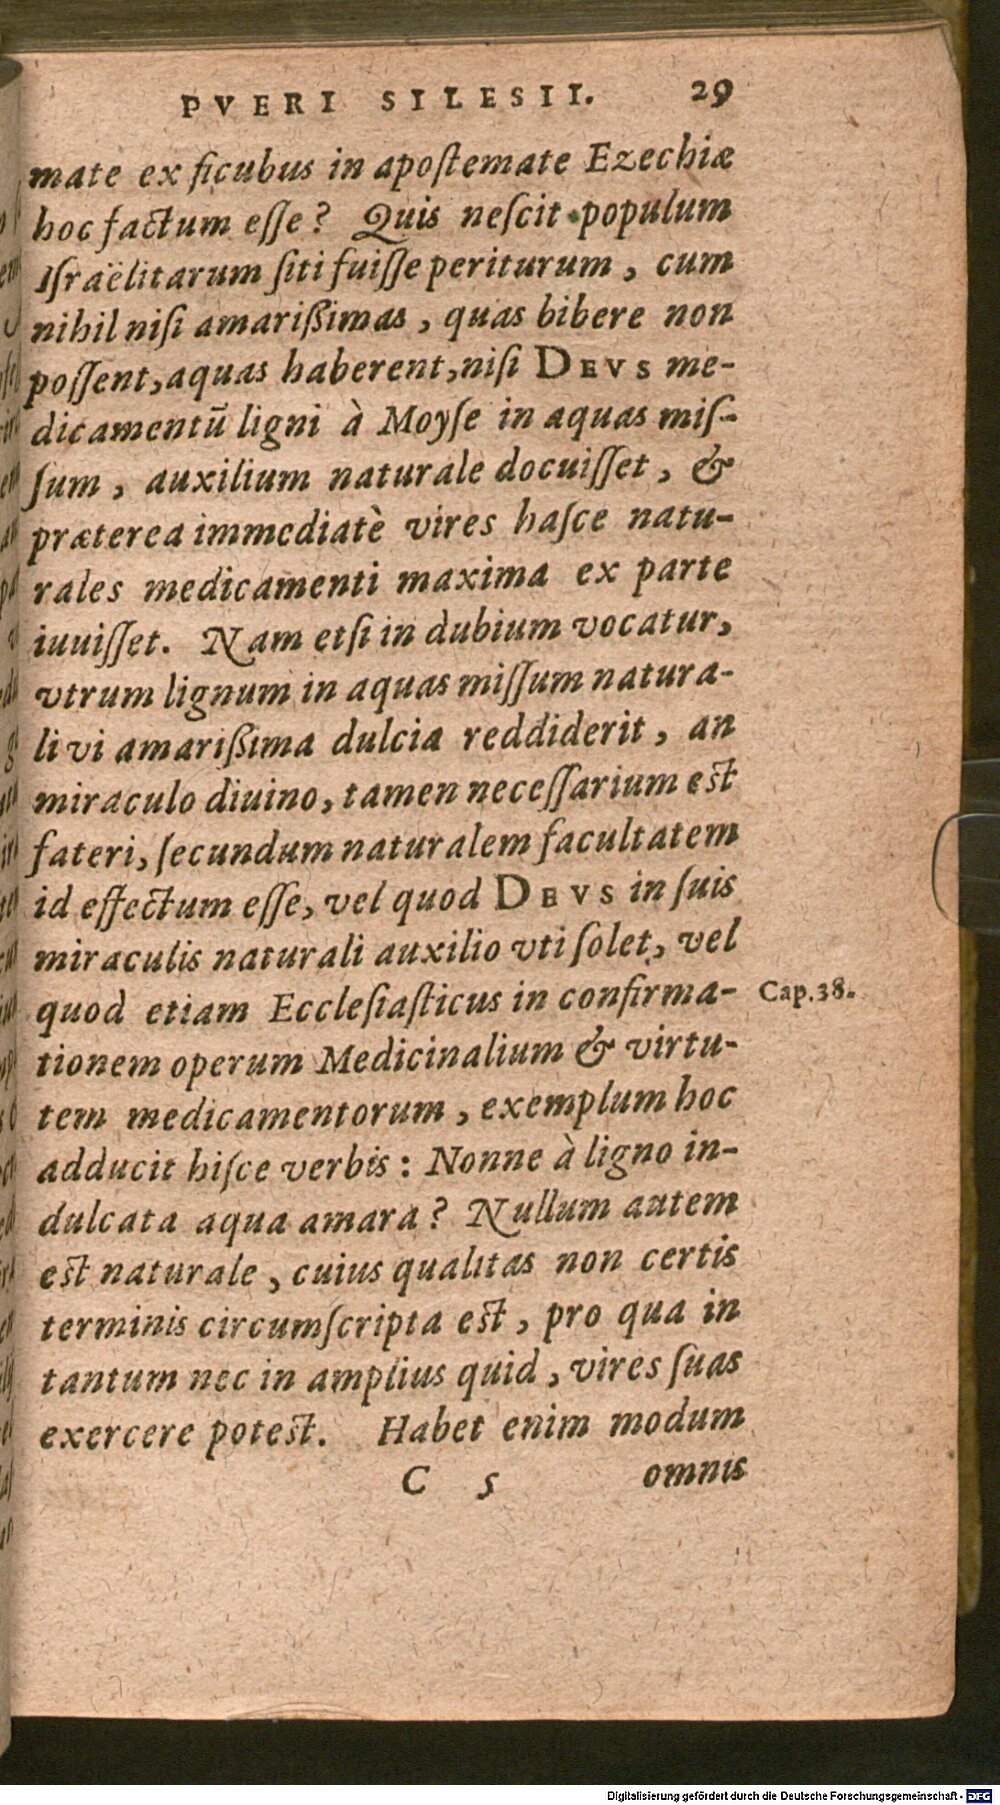 PVERI SILESII. 29
mate ex ficubus in apoſtemate Ezechiæ
hoc factum eſſe? Quis neſcit populum
Iſraëlitarum ſiti fuiſſe periturum, cum
nihil niſi amarißimas, quas bibere non
poſſent, aquas haberent, niſi DEVS me-
dicamentū ligni à Moyſe in aquas miſ-
ſum, auxilium naturale docuiſſet, &
præterea immediatè vires haſce natu-
rales medicamenti maxima ex parte
iuuiſſet. Nam etſi in dubium vocatur,
vtrum lignum in aquas miſſum natura-
li vi amarißima dulcia reddiderit, an
miraculo diuino, tamen neceſſarium est
fateri, ſecundum naturalem facultatem
id effectum eſſe, vel quod DEVS in ſuis
miraculis naturali auxilio vti ſolet, vel
quod etiam Eccleſiaſticus in confirma- Cap. 38.
tionem operum Medicinalium & virtu-
tem medicamentorum, exemplum hoc
adducit hiſce verbis: Nonne à ligno in-
dulcata aqua amara? Nullum autem
est naturale, cuius qualitas non certis
terminis circumſcripta est, pro qua in
tantum nec in amplius quid, vires ſuas
exercere potest. Habet enim modum
C 5 omnis
Digitalisierung gefördert durch die Deutsche Forschungsgemeinschaft - DFG